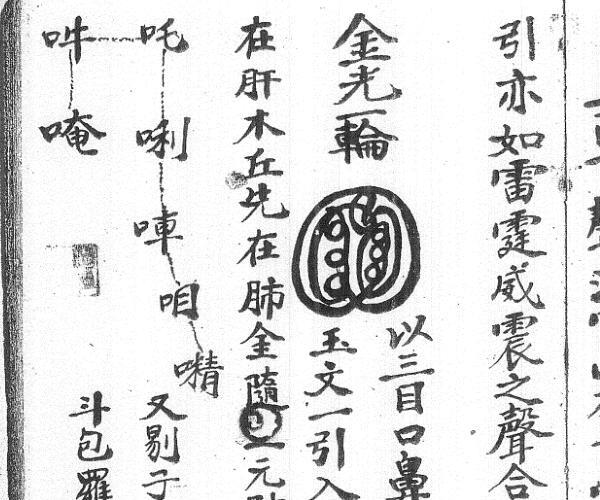 引亦如雷霆威震之聲合
金光一輪
以三目口鼻
玉文一引入
在肝木丘先在肺金隨一元
吒唎㖠咱𡄸
又剔子
吽唵
斗包羅